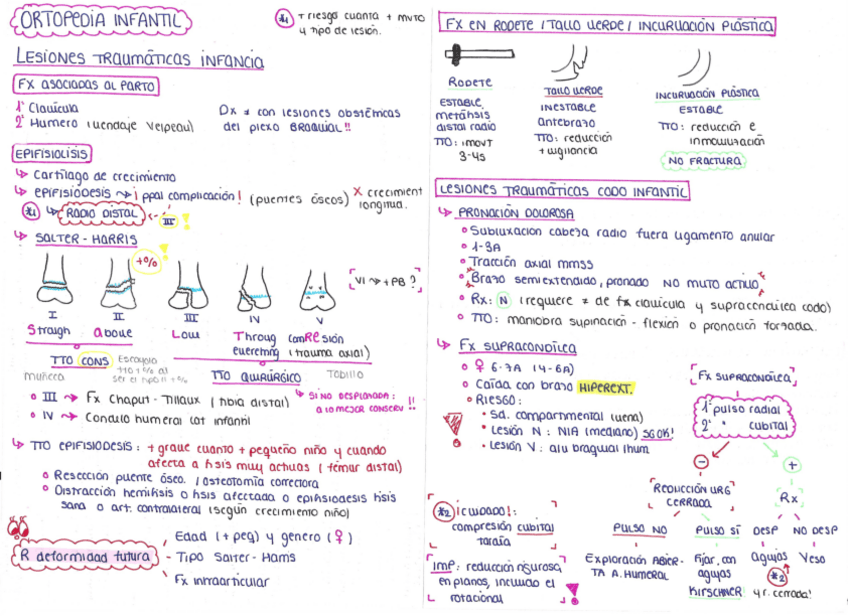 ORTOPEDIA INFANTIL
*1 + riesgo cuanta + mvto
y tipo de lesión.
LESIONES TRAUMÁTICAS INFANCIA
FX ASOCIADAS AL PARTO
1º Clavícula
2º Humero (vendaje Velpeau)
Dx ≠ con lesiones obstétricas
del plexo BRAQUIAL!!
EPIFISIOLISIS
↳ Cartílago de crecimiento
↳ EPIFISIODESIS ↝ ¡ppal complicación! (puentes óseos) X crecimient
longitud.
*1 ↳ RADIO DISTAL ← III !
↳ SALTER-HARRIS
+% !
[VI ↝ + PB ?]
I II III IV V
Straigh Above Low Throug comREsión
everything (trauma axial)
TTO CONS
Escayola
muñeca
TTO QUIRÚRGICO
Tobillo
III → Fx Chaput-Tillaux (tibia distal)
↳ SI NO DESPLAZADA:
a lo mejor conserv !!
IV → Condilo humeral lat infantil
↳ TTO EPIFISIODESIS: + grave cuanto + pequeño niño y cuando
afecta a fisis muy activas (fémur distal)
Resección puente óseo / osteotomía correctora
Distracción hemifisis o fisis afectada o epifisiodesis fisis
sana o art. contralateral (según crecimiento niño)
R deformidad futura
Edad (+ peq) y genero (♀)
Tipo Salter-Harris
Fx intraarticular
FX EN RODETE / TALLO VERDE / INCURVACIÓN PLÁSTICA
RODETE
ESTABLE
metáfisis
distal radio
TTO: imovt
3-4s
TALLO VERDE
INESTABLE
antebrazo
TTO: reducción
+ vigilancia
INCURVACIÓN PLÁSTICA
ESTABLE
TTO: reducción e
inmovilización
NO FRACTURA
LESIONES TRAUMÁTICAS CODO INFANTIL
↳ PRONACIÓN DOLOROSA
Subluxacion cabeza radio fuera ligamento anular
1-3A
Tracción axial mmss
Brazo semiextendido, pronado NO mvto activo
Rx: N (requiere ≠ de fx clavícula y supracondilea codo)
TTO: maniobra supinación - flexión o pronación forzada.
↳ FX SUPRACONDÍLEA
♀ 6-7A (4-6A)
Caída con brazo HIPEREXT.
Riesgo:
Sd. compartimental (vena)
Lesión N: NIA (mediano) SG OK!
Lesión V: a/v braquial/hum
FX SUPRACONDÍLEA
1º pulso radial
2º " cubital
- +
REDUCCIÓN URG
CERRADA
Rx
PULSO NO PULSO SÍ DESP NO DESP
Exploración ABIER-
TA A. HUMERAL
Fijar, con
agujas
KIRSCHNER
agujas
*2
y r. cerrada!
Yeso
*2 ¡cuidado!:
compresión cubital
tardía
IMP: reducción rigurosa
en planos, incluido el
rotacional